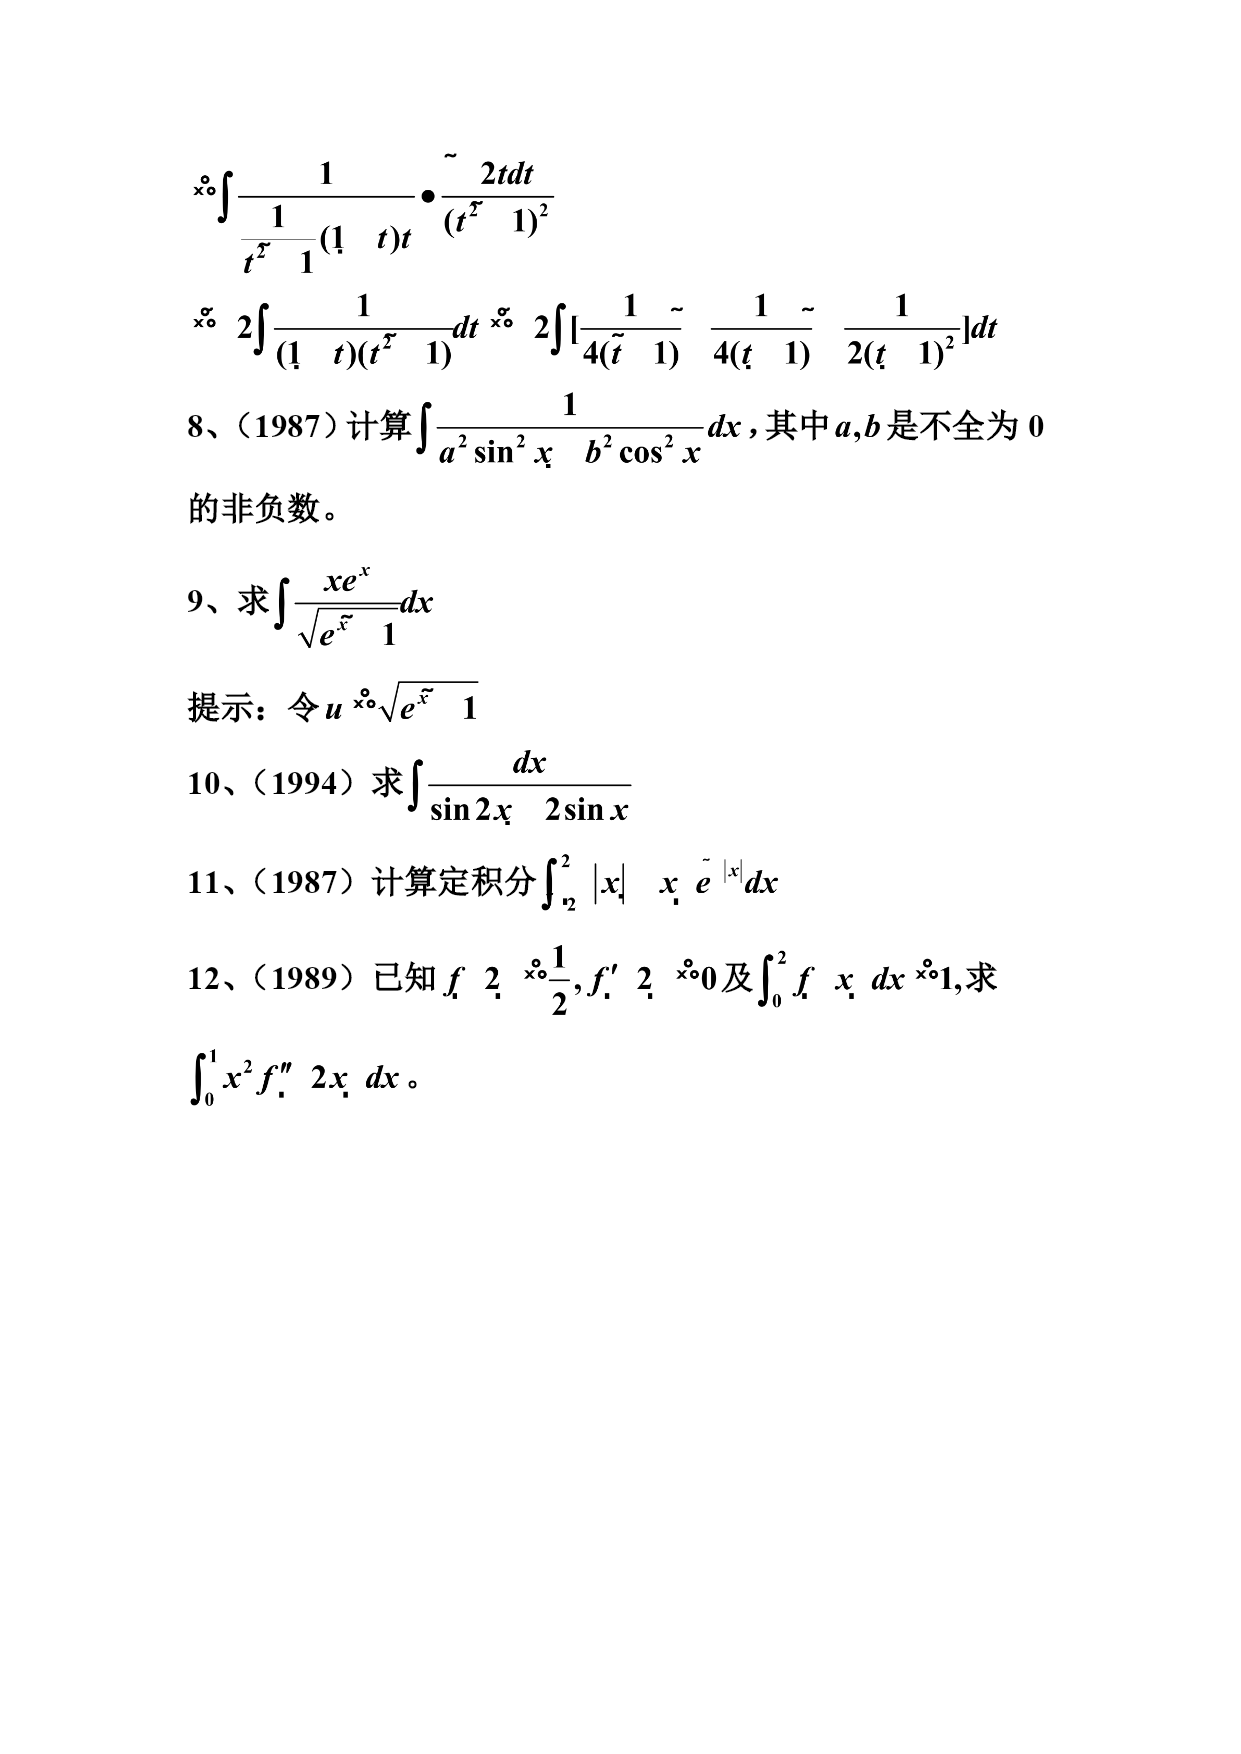 ∫ 1 / ( 1/(t² ~ 1) (1 t)t ) • ~ 2tdt / (t² ~ 1)²
2∫ 1 / ((1 t)(t² ~ 1)) dt 2∫[ 1 / 4(t ~ 1) ~ 1 / 4(t 1) ~ 1 / 2(t 1)² ]dt
8、（1987）计算∫ 1 / (a² sin² x b² cos² x) dx，其中a,b是不全为 0
的非负数。
9、求∫ xeˣ / √(eˣ ~ 1) dx
提示：令u √(eˣ ~ 1)
10、（1994）求∫ dx / (sin 2x 2sin x)
11、（1987）计算定积分∫₂² |x| x e ~ |x| dx
12、（1989）已知 f 2 1/2, f′ 2 0及∫₀² f x dx 1,求
∫₀¹ x² f″ 2x dx。